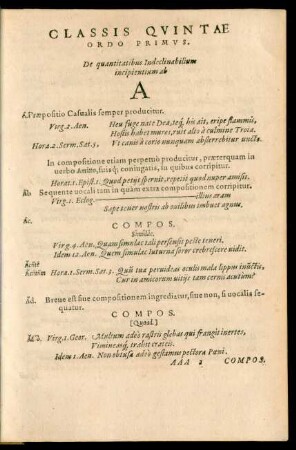 CLASSIS QVINTAE
ORDO PRIMVS.
De quantitatibus Indeclinabilium
incipientium ab
A
A Præpositio Casualis semper producitur.
Virg. 2. Aen. Heu fuge nate Dea, teq́; his ait, eripe flammis,
Hostis habet muros, ruit alto à culmine Troia.
Hora. 2. Serm. Sat. 3. Vt canis à corio nunquam absterrebitur uncto.
In compositione etiam perpetuò producitur, præterquam in
uerbo Amitto, suisq́; coniugatis, in quibus corripitur.
Horat. 1. Epist. 1. Quod petijt spernit, repetit quod nuper amisit.
Sequente uocali tam in quàm extra compositionem corripitur.
Virg. 1. Eclog. illius aram
Sæpe tener nostris ab ouilibus imbuet agnus.
Ac.
COMPOS.
Simile.
Virg. 4. Aen. Quam simulac tali persensit peste teneri.
Idem 12. Aen. Quem simulac iuturna soror crebrescere uidit.
Hora. 1. Serm. Sat. 3. oculis mala lippus inunctis,
Cur in amicorum uitijs tam cernis acutum?
Ad. Breue est siue compositionem ingrediatur, siue non, si uocalis sequatur.
COMPOS.
[Quad.]
Virg. 1. Geor. Multum adeò rastris glebas qui frangit inertes,
Vimineasq́; trahit crates.
Idem 1. Aen. Non obtusa adeò gestamus pectora Pœni.
AAA 2 COMPOS.